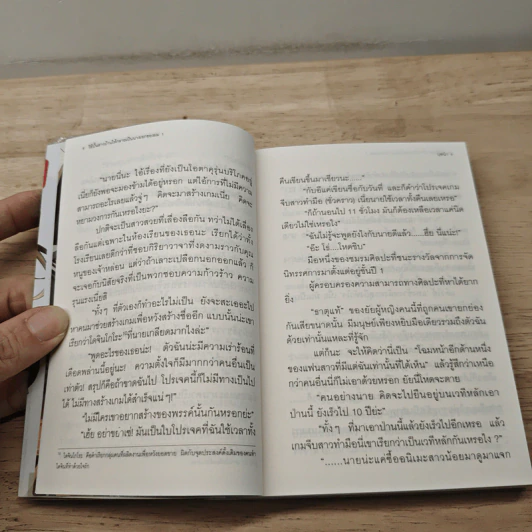 "นายนี่นะ ไอ้เรื่องที่ยังเป็นโอตาคุรุ่นบริโภคอยู่
เนี่ยก็ยังพอจะมองข้ามได้อยู่หรอก แต่ไอ้การที่ไม่มีความ
สามารถอะไรเลยแล้วจู่ๆ คิดจะมาสร้างเกมเนี่ย คิดจะ
หยามวงการกันเหรอไงยะ?"
ปกติจะเป็นสาวสวยที่เลื่องลือกัน ทว่าไม่ได้เลื่อง
ลือกันแต่เฉพาะในห้องเรียนของเธอนะ เรียกได้ว่าทั้ง
โรงเรียนเลยดีกว่าที่ชอบกิริยาวาจาที่งดงามราวกับคุณ
หนูของเจ้าหล่อน แต่ว่าถ้าเลาะเปลือกนอกออกแล้ว ก็
จะเจอกับนิสัยจริงที่เป็นพวกชอบความก้าวร้าว ความ
รุนแรงเนี่ยสิ
"ทั้งๆ ที่ตัวเองก็ทำอะไรไม่เป็น ยังจะสะเออะไป
หาคนมาช่วยสร้างเกมเพื่อหวังสร้างชื่ออีก แบบนั้นน่ะเขา
เรียกว่าไดจินโกโระ ที่นายเกลียดมากไงล่ะ"
"พูดอะไรของเธอน่ะ! ตัวฉันน่ะมีความเร่าร้อนที่
เดือดพล่านนี้อยู่นะ! ความตั้งใจก็มีมากกว่าคนอื่นเป็น
เท่าตัว! สรุปก็คือถ้าขาดฉันไป โปรเจคนี้ก็ไม่มีทางเป็นไป
ได้ ไม่มีทางสร้างเกมได้สำเร็จแน่ๆ!"
"ไม่มีใครเขาอยากสร้างของพรรค์นั้นกันหรอกย่ะ"
"เฮ้ย อย่าขยาเซ่! มันเป็นใบโปรเจคที่ฉันใช้เวลาทั้ง
คืนเขียนขึ้นมาเชียวนะ......"
"กับอีแค่เขียนชื่อกับวันที่ และก็คำว่าโปรเจคเกม
จีบสาวทำมือ (ชั่วคราว) เนี่ยนายใช้เวลาทั้งคืนเลยเหรอ"
"ก็ถ้านอนไป 11 ชั่วโมง มันก็ต้องเหลือเวลาแค่นิด
เดียวไม่ใช่เหรอไง"
"ฉันไม่รู้จะพูดยังไงกับนายดีแล้ว......ฮึ่ย นี่แน่ะ!"
"อ๊ะ โธ่...โหดชิบ"
มือหนึ่งของชมรมศิลปะที่ชนะรางวัลจากการจัด
นิทรรศการมาตั้งแต่อยู่ชั้นปี 1
ผู้ครอบครองความสามารถทางศิลปะที่หาได้ยาก
ยิ่ง
"ธาตุแท้" ของยัยผู้หญิงคนนี้ที่ถูกคนเขายกย่อง
กันเสียขนาดนั้น มีมนุษย์เพียงหยิบมือเดียวรวมถึงตัวฉัน
ด้วยเท่านั้นแหละที่รู้จัก
แต่ก็นะ จะให้คิดว่านี่เป็น "โฉมหน้าอีกด้านหนึ่ง
ของแฟนสาวที่มีแต่ฉันเท่านั้นที่ได้เห็น" แล้วรู้สึกว่าเหนือ
กว่าคนอื่นนี่ก็ไม่เอาด้วยหรอก ยัยนี่โหดจะตาย
"คนอย่างนาย คิดจะไปยืนอยู่บนเวทีหลักเอา
ป่านนี้ ยังเร็วไป 10 ปีย่ะ"
"ทั้งๆ ที่มาเอาป่านนี้แล้วยังเร็วไปอีกเหรอ แล้ว
เกมจีบสาวทำมือนี่เขาเรียกว่าเป็นเวทีหลักกันเหรอไง ?"
"......นายน่ะแค่ซื้ออนิเมะสาวน้อยมาดูมาแจก